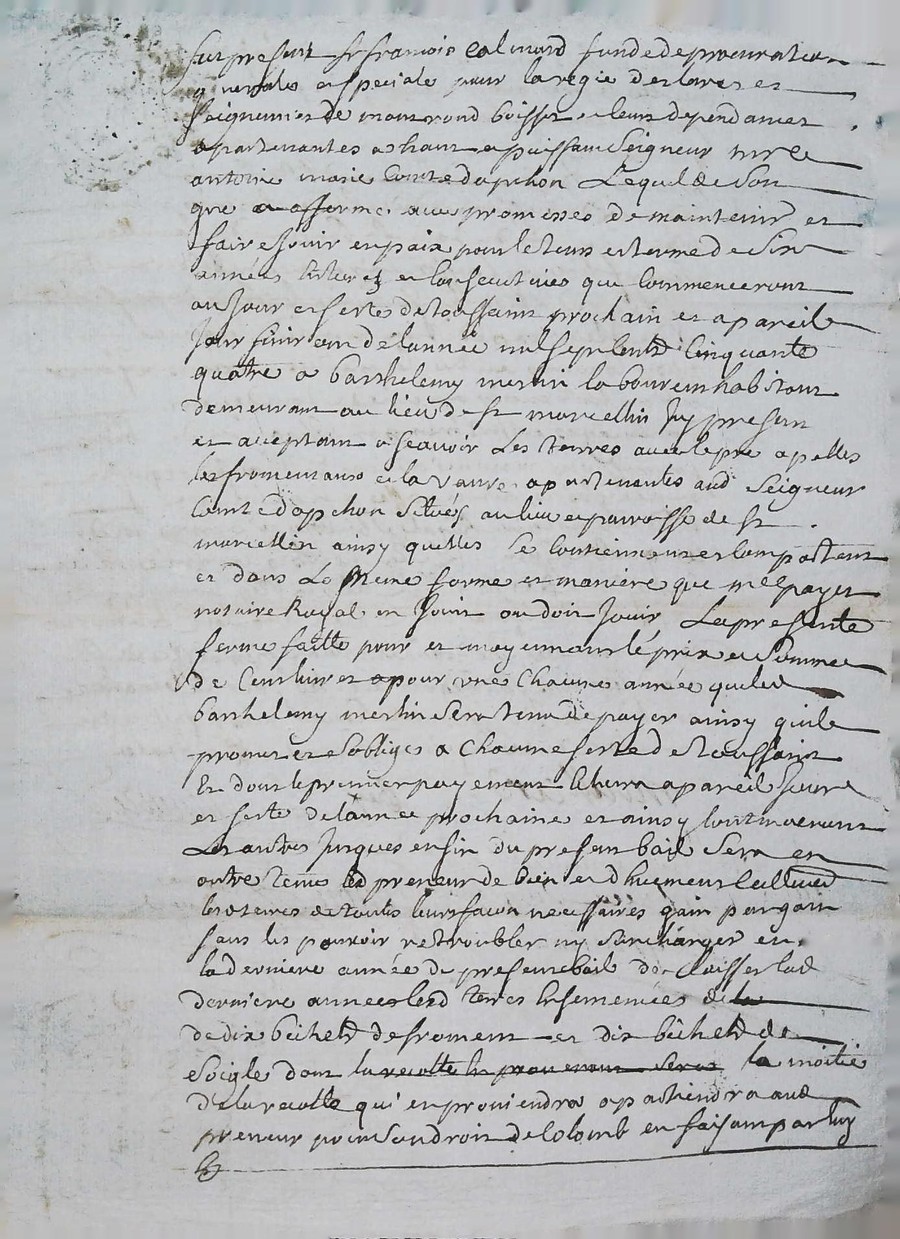 fut present Sr francois Calmard fondé de procuration
generale et speciale pour la regie des terres et
seigneuries de montrond boisset et leurs dependances
apartenantes a haut et puissant Seigneur mre
antoine marie Comte dapchon Lequel de son
gre a afferme avec promesses de maintenir et
faire jouir en paix pour le tems et terme de six
années entieres et consecutives que commenceront
au jour et feste de toussaint prochain et a pareil
jour finiront de lannée mil sept cents Cinquante
quatre a barthelemy merlin laboureur habitant
demeurant au lieu de st marcellin Icy present
et aceptant a scavoir Les terres avec le pre apelles
les fromentaux et la vaure apartenantes aud Seigneur
Comte dapchon Situés au lieu et parroisse de st
marcellin ainsy quelles se contiennent et comportent
et dans La meme forme et maniere que me payet
notaire Royal en jouit ou doit jouir La presente
ferme faitte pour et moyennant le prix et Somme
de Cent livres pour une Chacune année que led
barthelemy merlin sera tenu de payer ainsy quil
promet et soblige a Chacune feste de toussaint
Et dont le premier payement Echera a pareil jour
et feste de lannee prochaine et ainsy continueront
Les autres jusques en fin du present bail Sera en
outre tenu led preneur de bien et dhuement Cultiver
les terres de toutes leurs facon necessaires gain par gain
sans les pouvoir retroubler ny surcharger en
la derniere année du present bail de laisser lad
derniere annee lesd terres Ensemencées de la
de dix bichets de froment et dix bichets de
Soigle dont la recolte En provenant sera la moitié
de la recolte qui en proviendra apartiendra aud
preneur pour son droit de Colomb en faisant par luy